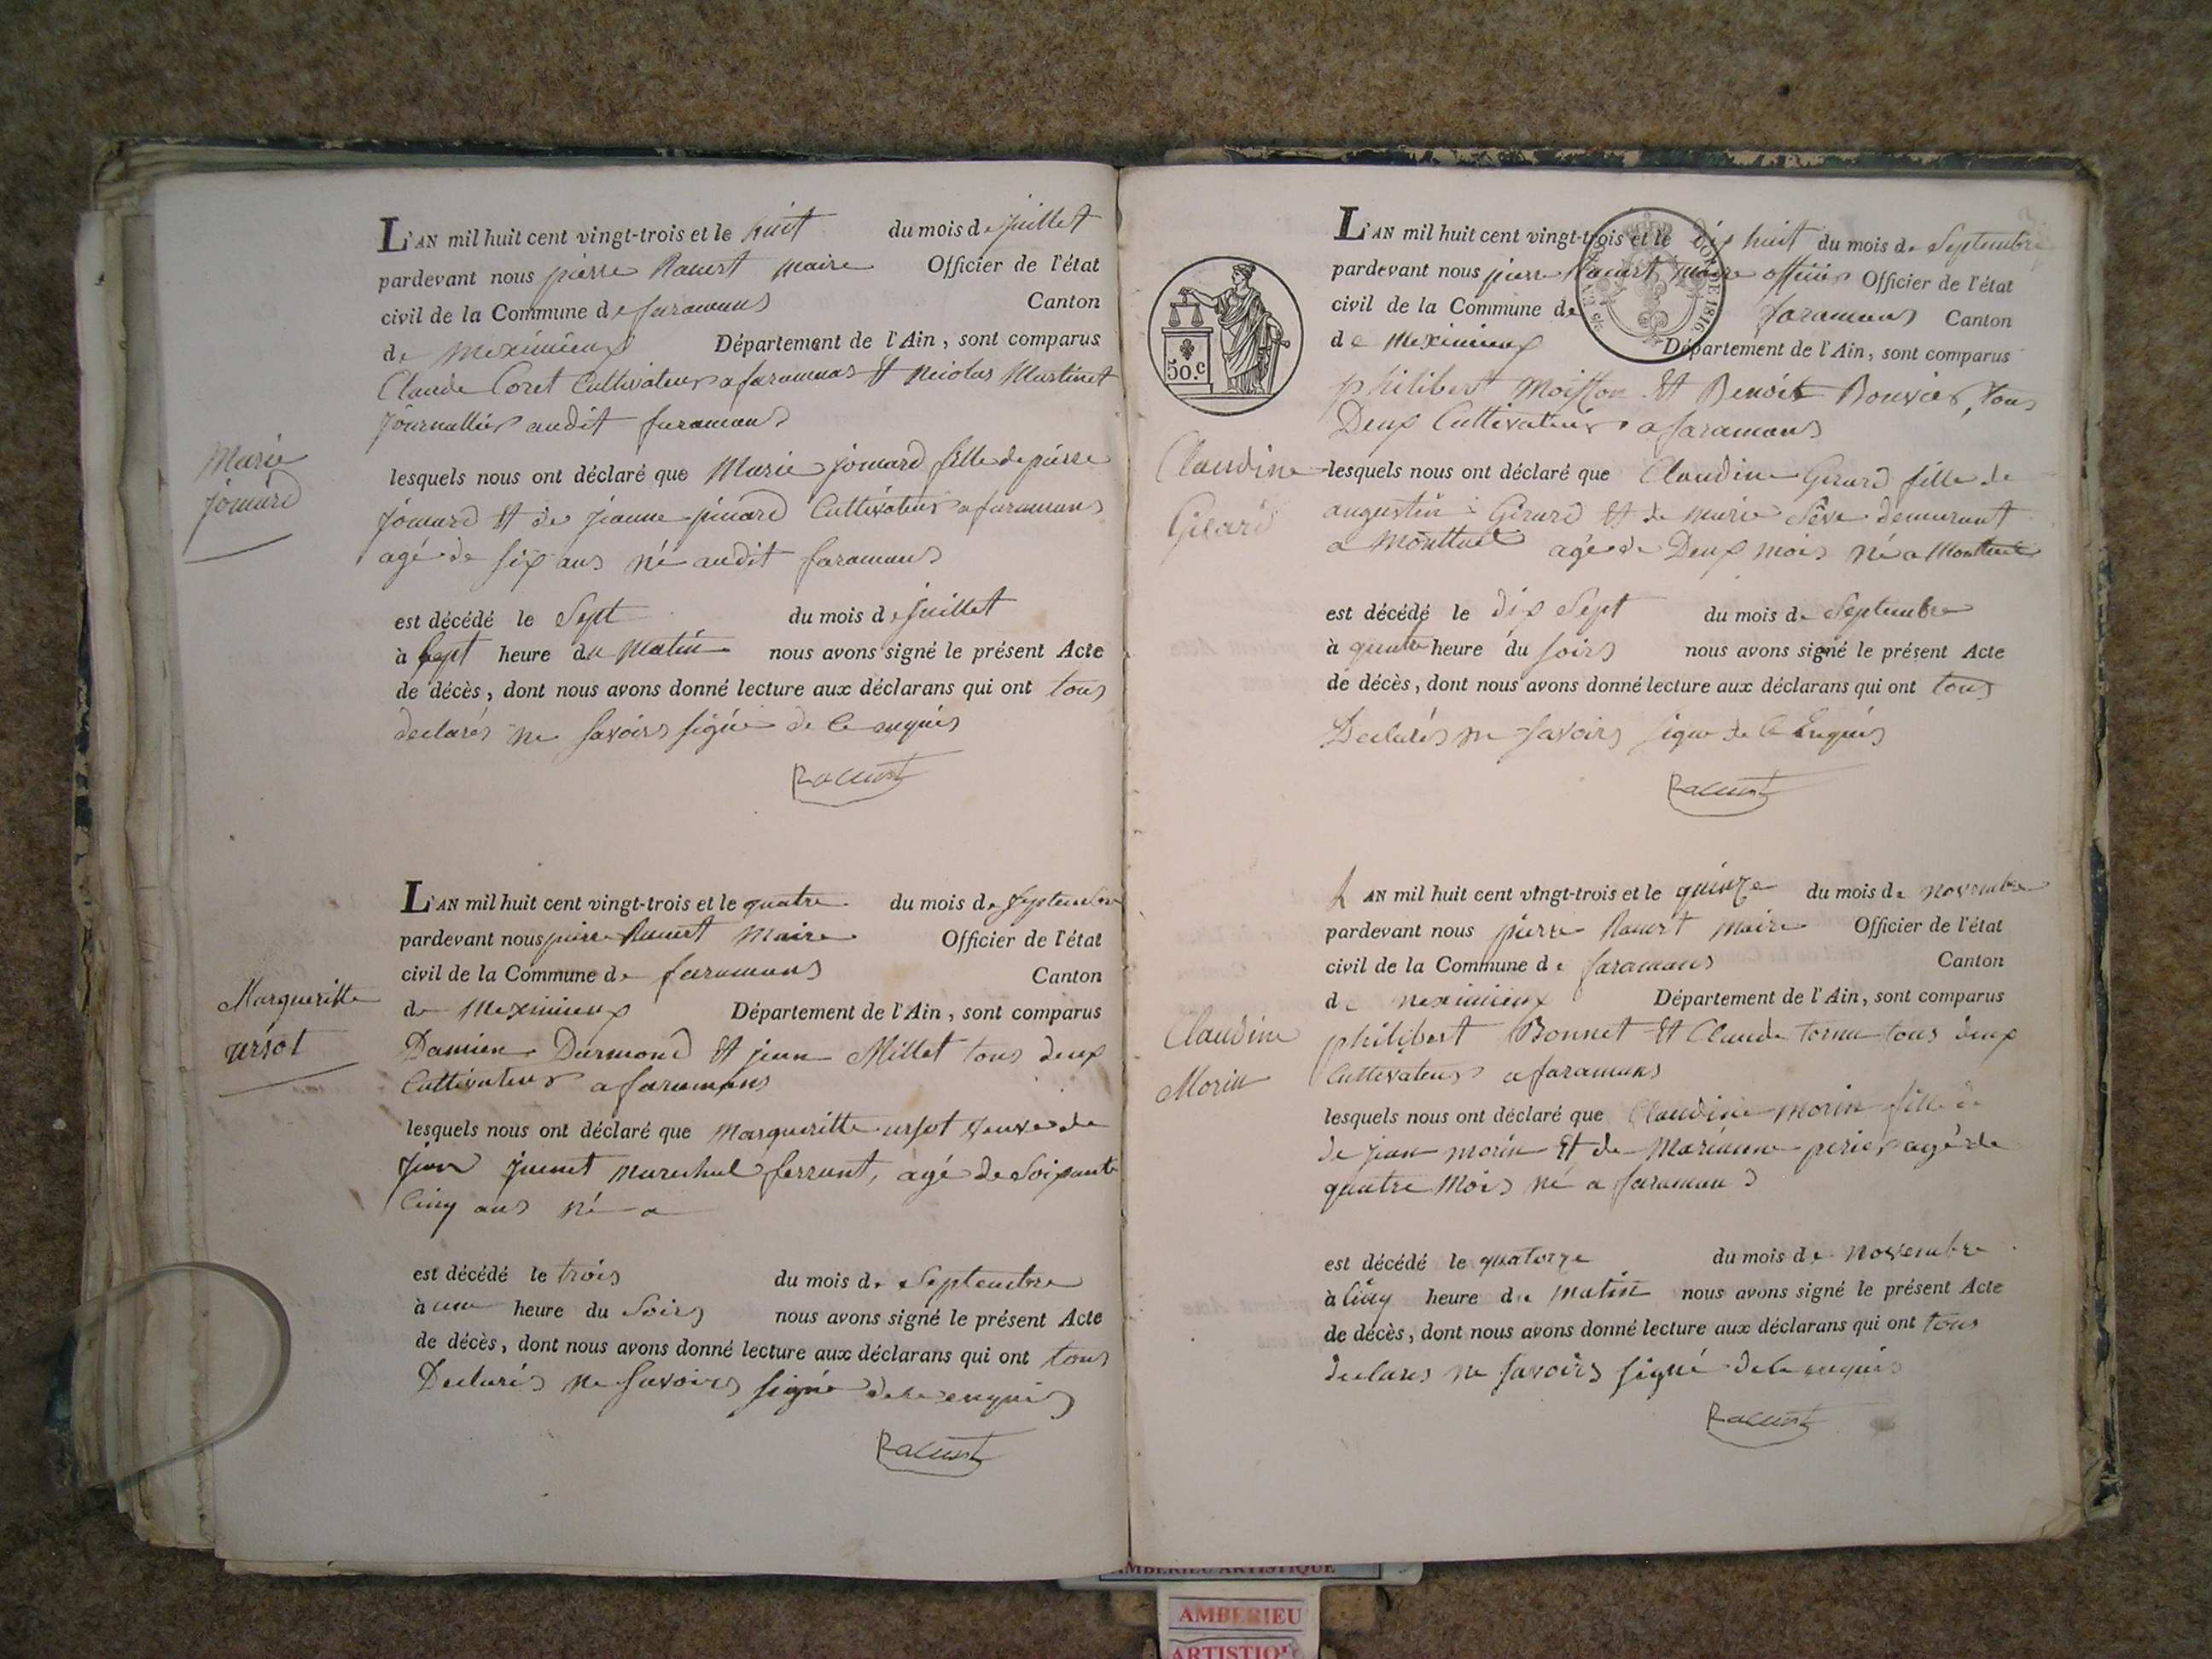 L'AN mil huit cent vingt-trois et le huit du mois de juillet
pardevant nous pierre Racurt maire Officier de l'état
civil de la Commune de faramans Canton
de meximieux Département de l'Ain, sont comparus
Claude Coret Cultivateur a faramans Et nicolas Martinet
journallier audit faramans
Marie
jomard
lesquels nous ont déclaré que Marie jomard fille de pierre
jomard Et de jeanne pinard Cultivateur a faramans
agé de six ans né audit faramans
est décédé le Sept du mois de juillet
à sept heure du Matin nous avons signé le présent Acte
de décès, dont nous avons donné lecture aux déclarans qui ont tous
declarés ne savoirs signé de ce enquis
Racurt
L'AN mil huit cent vingt-trois et le quatre du mois de septembre
pardevant nous pierre Racurt Maire Officier de l'état
civil de la Commune de faramans Canton
de Meximieux Département de l'Ain, sont comparus
Margueritte
ursot
Damien Durmond Et jean Millet tous deux
Cultivateur a faramans
lesquels nous ont déclaré que Margueritte ursot veuve de
jean juenet marechal ferrant, agé de Soixante
Cinq ans né a
est décédé le trois du mois de Septembre
à une heure du Soirs nous avons signé le présent Acte
de décès, dont nous avons donné lecture aux déclarans qui ont tous
Declarés ne savoirs signé de ce enquis
Racurt
L'AN mil huit cent vingt-trois et le dix huit du mois de Septembre
pardevant nous pierre Racurt maire officier Officier de l'état
civil de la Commune de faramans Canton
de Meximieux Département de l'Ain, sont comparus
50.c
philibert Moisson Et Benoit Bouvier, tous
Deux Cultivateur a faramans
Claudine
Girard
lesquels nous ont déclaré que Claudine Girard fille de
augustin Girard Et de marie Sève demurant
a Montluel agé de Deux mois né a Montluel
est décédé le dix Sept du mois de Septembre
à quatre heure du soirs nous avons signé le présent Acte
de décès, dont nous avons donné lecture aux déclarans qui ont tous
Declarés ne savoirs signe de ce Enquis
Racurt
L AN mil huit cent vingt-trois et le quinze du mois de novembre
pardevant nous pierre Racurt maire Officier de l'état
civil de la Commune de faramans Canton
de meximieux Département de l'Ain, sont comparus
Claudine
Morin
philibert Bonnet Et Claude tornu tous deux
Cultivateur a faramans
lesquels nous ont déclaré que Claudine morin fille de
de jean morin Et de Marianne perier agé de
quatre Mois né a faramans
est décédé le quatorze du mois de Novembre
à Cinq heure du matin nous avons signé le présent Acte
de décès, dont nous avons donné lecture aux déclarans qui ont tous
declares ne savoirs signé de ce enquis
Racurt
AMBERIEU ARTISTIQUE
AMBERIEU
ARTISTIQUE